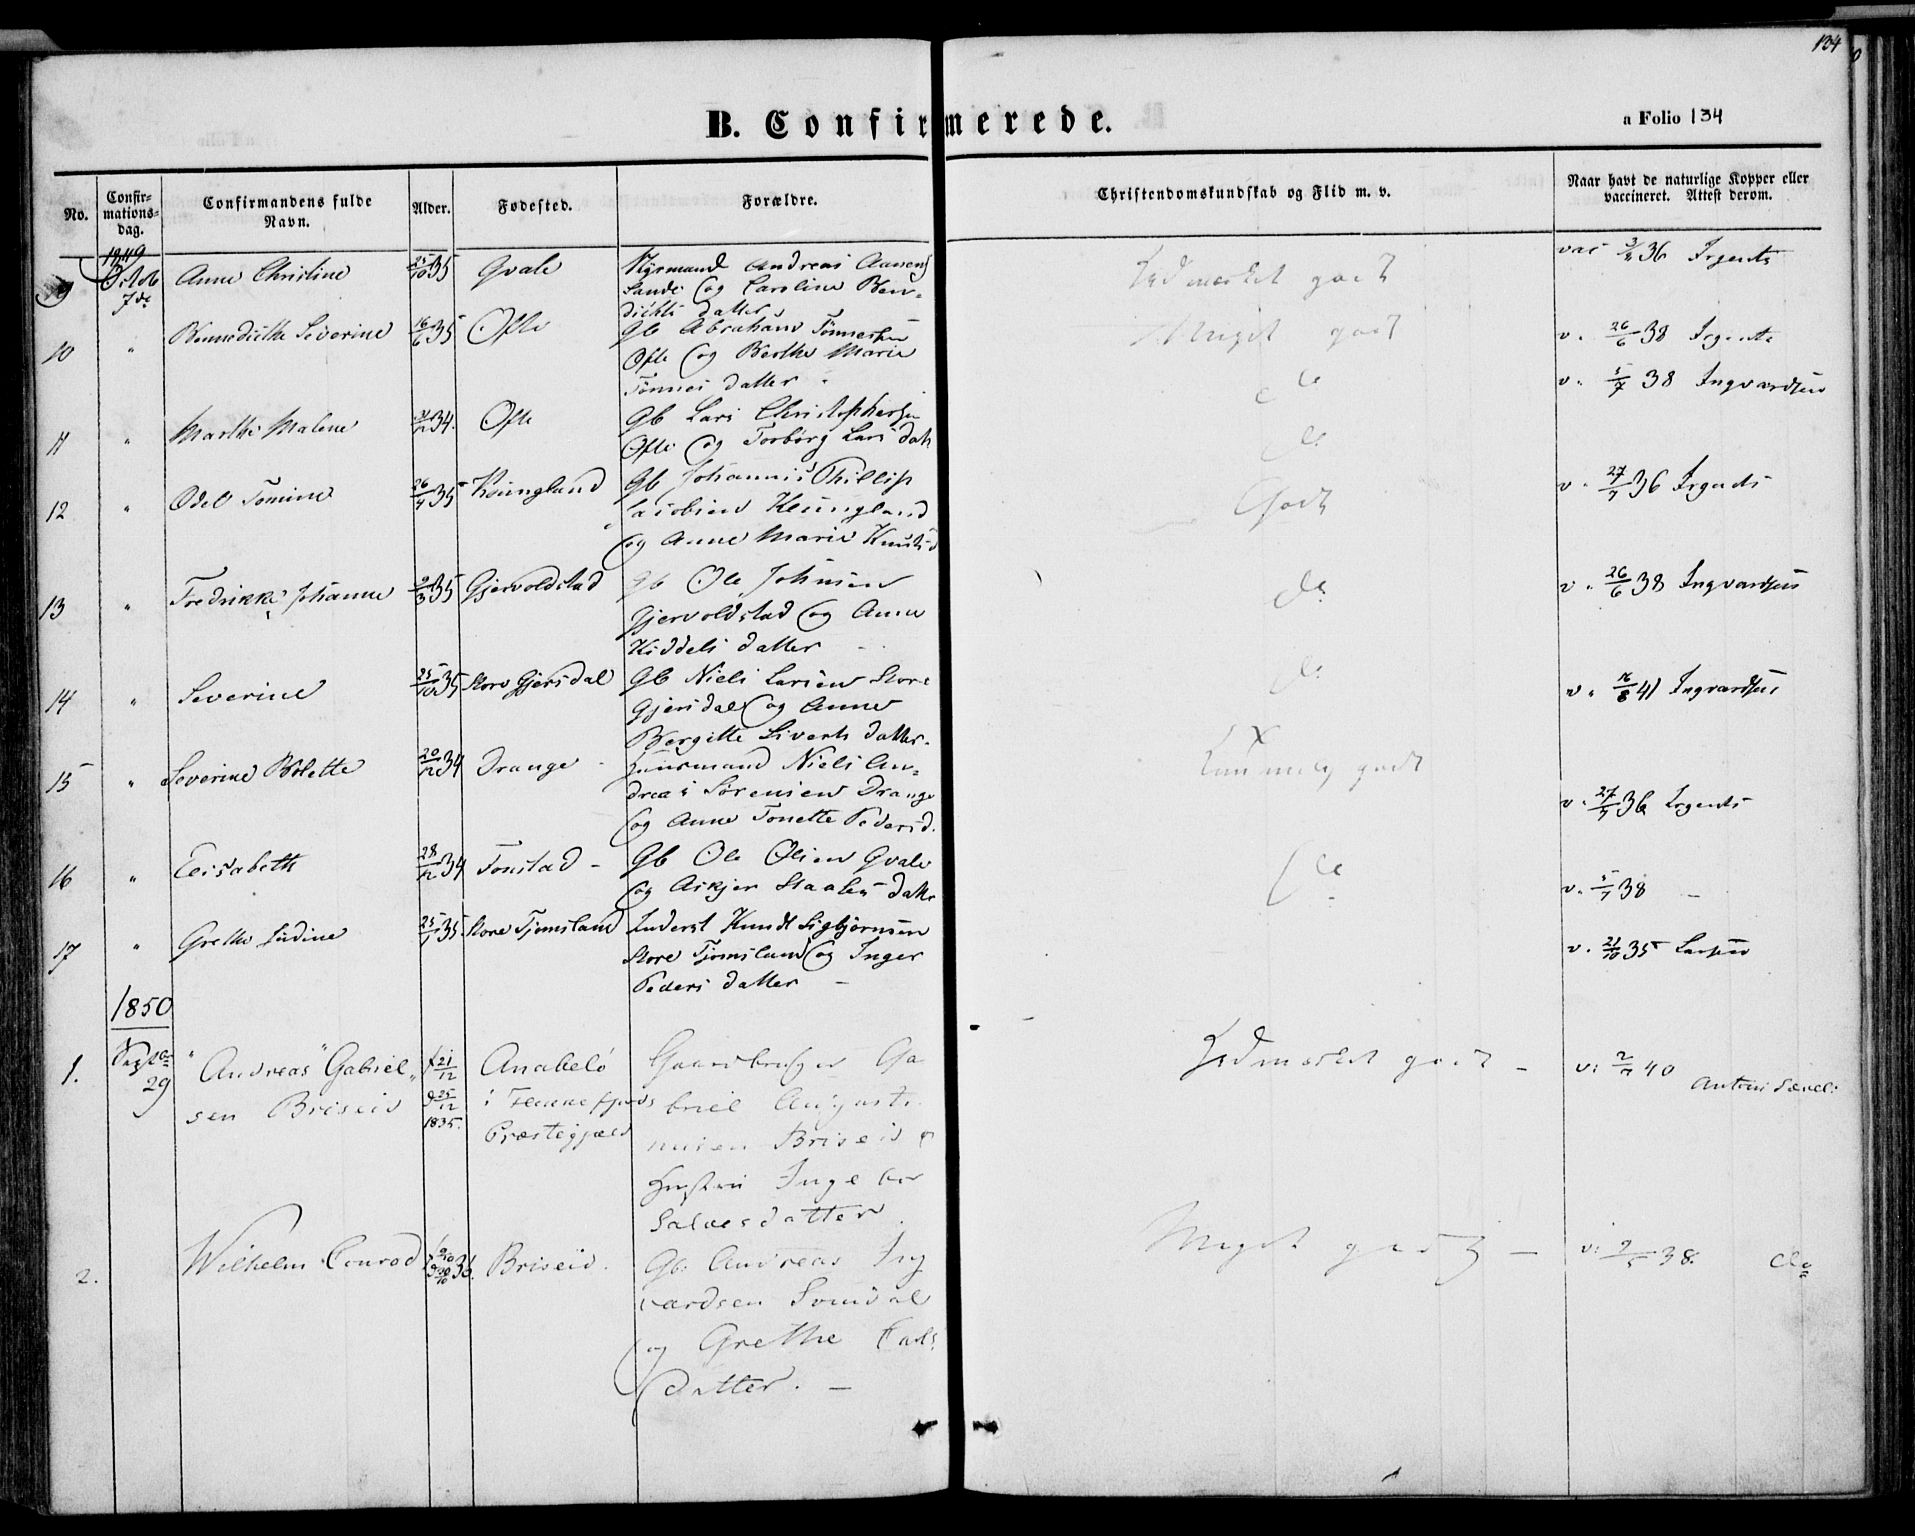 134
B. Confirmerede.
a Folio 134
No.
Confir-
mations-
dag.
Confirmandens fulde
Navn.
Alder.
Fødested.
Forældre.
Christendomskundskab og Flid m. v.
Naar havt de naturlige Kopper eller
vaccineret. Attest derom.
1849
9 Octob 7de Anne Christine 25/10 35 Qvale
Andreas Aanens
Sande og Caroline Ben-
dichte datter
vac 3/ 36 Irgents
10 " Bennedicthe Severine 16/6 35 Ofte
Gb Abraham Tønnessen
Ofte og Berthe Marie
Tønnes datter
Meget godt
v. 26/6 38 Irgents
11 " Marthe Malene 34. Ofte
Gb Lars Christophersen
Ofte og Torborg Lars datt
do
v. 5/7 38 Ingvardsen
12 " Odel Tomine 26/4 35
Gb Johannes Phillip
Jacobsen
og Anne Marie Knuts d
Godt
v. 27/7 36 Irgents
13 " Fredrikke Johanne 9/3 35 Gjervoldstad
Gb Ole Johnsen
Gjervoldstad og Anne
Kiddels datter
do
v. 26/6 38 Ingvardsen
14 " Severine 25/10 35 Store Gjersdal
Gb Niels Larsen Store
Gjersdal og Anne
Bergitte Siverts datter.
do
v. 41 Ingvardsen
15 " Severine Bolette 20/12 34 Drange
Huusmand Niels An-
dreas Sørensen Drange
og Anne Tonette Peders d.
godt
v. 27/7 36 Irgents
16 " Elisabeth 28/12 34 Fonstad
Gb Ole Olsen Qvale
og Askjer Staales datter
do
v. 5/7 38
17 " Grethe Judine 25/1 35 Store Tjomsland
Inderst Knudt Sigbjørnsen
Store Tjomsland og Inger
Peders datter
v. 21/10 35 Larsen
1850
1. Septbr 29 "Andreas" Gabriel-
sen Briseid
f 21/12
d 25/12
1835.
Anabeló
i Flekkefjords
Præstegjæld
Gaardbruger Ga
briel Augusti
nusen Briseid &
Hustru Ingebor
Salvesdatter
Udmærket godt
v: 2/7 40
2. Wilhelm Conrad 36. Briseid.
Gb: Andreas Ing
vardsen
og Grethe
datter.
Meget godt
v: 9/5 38. do